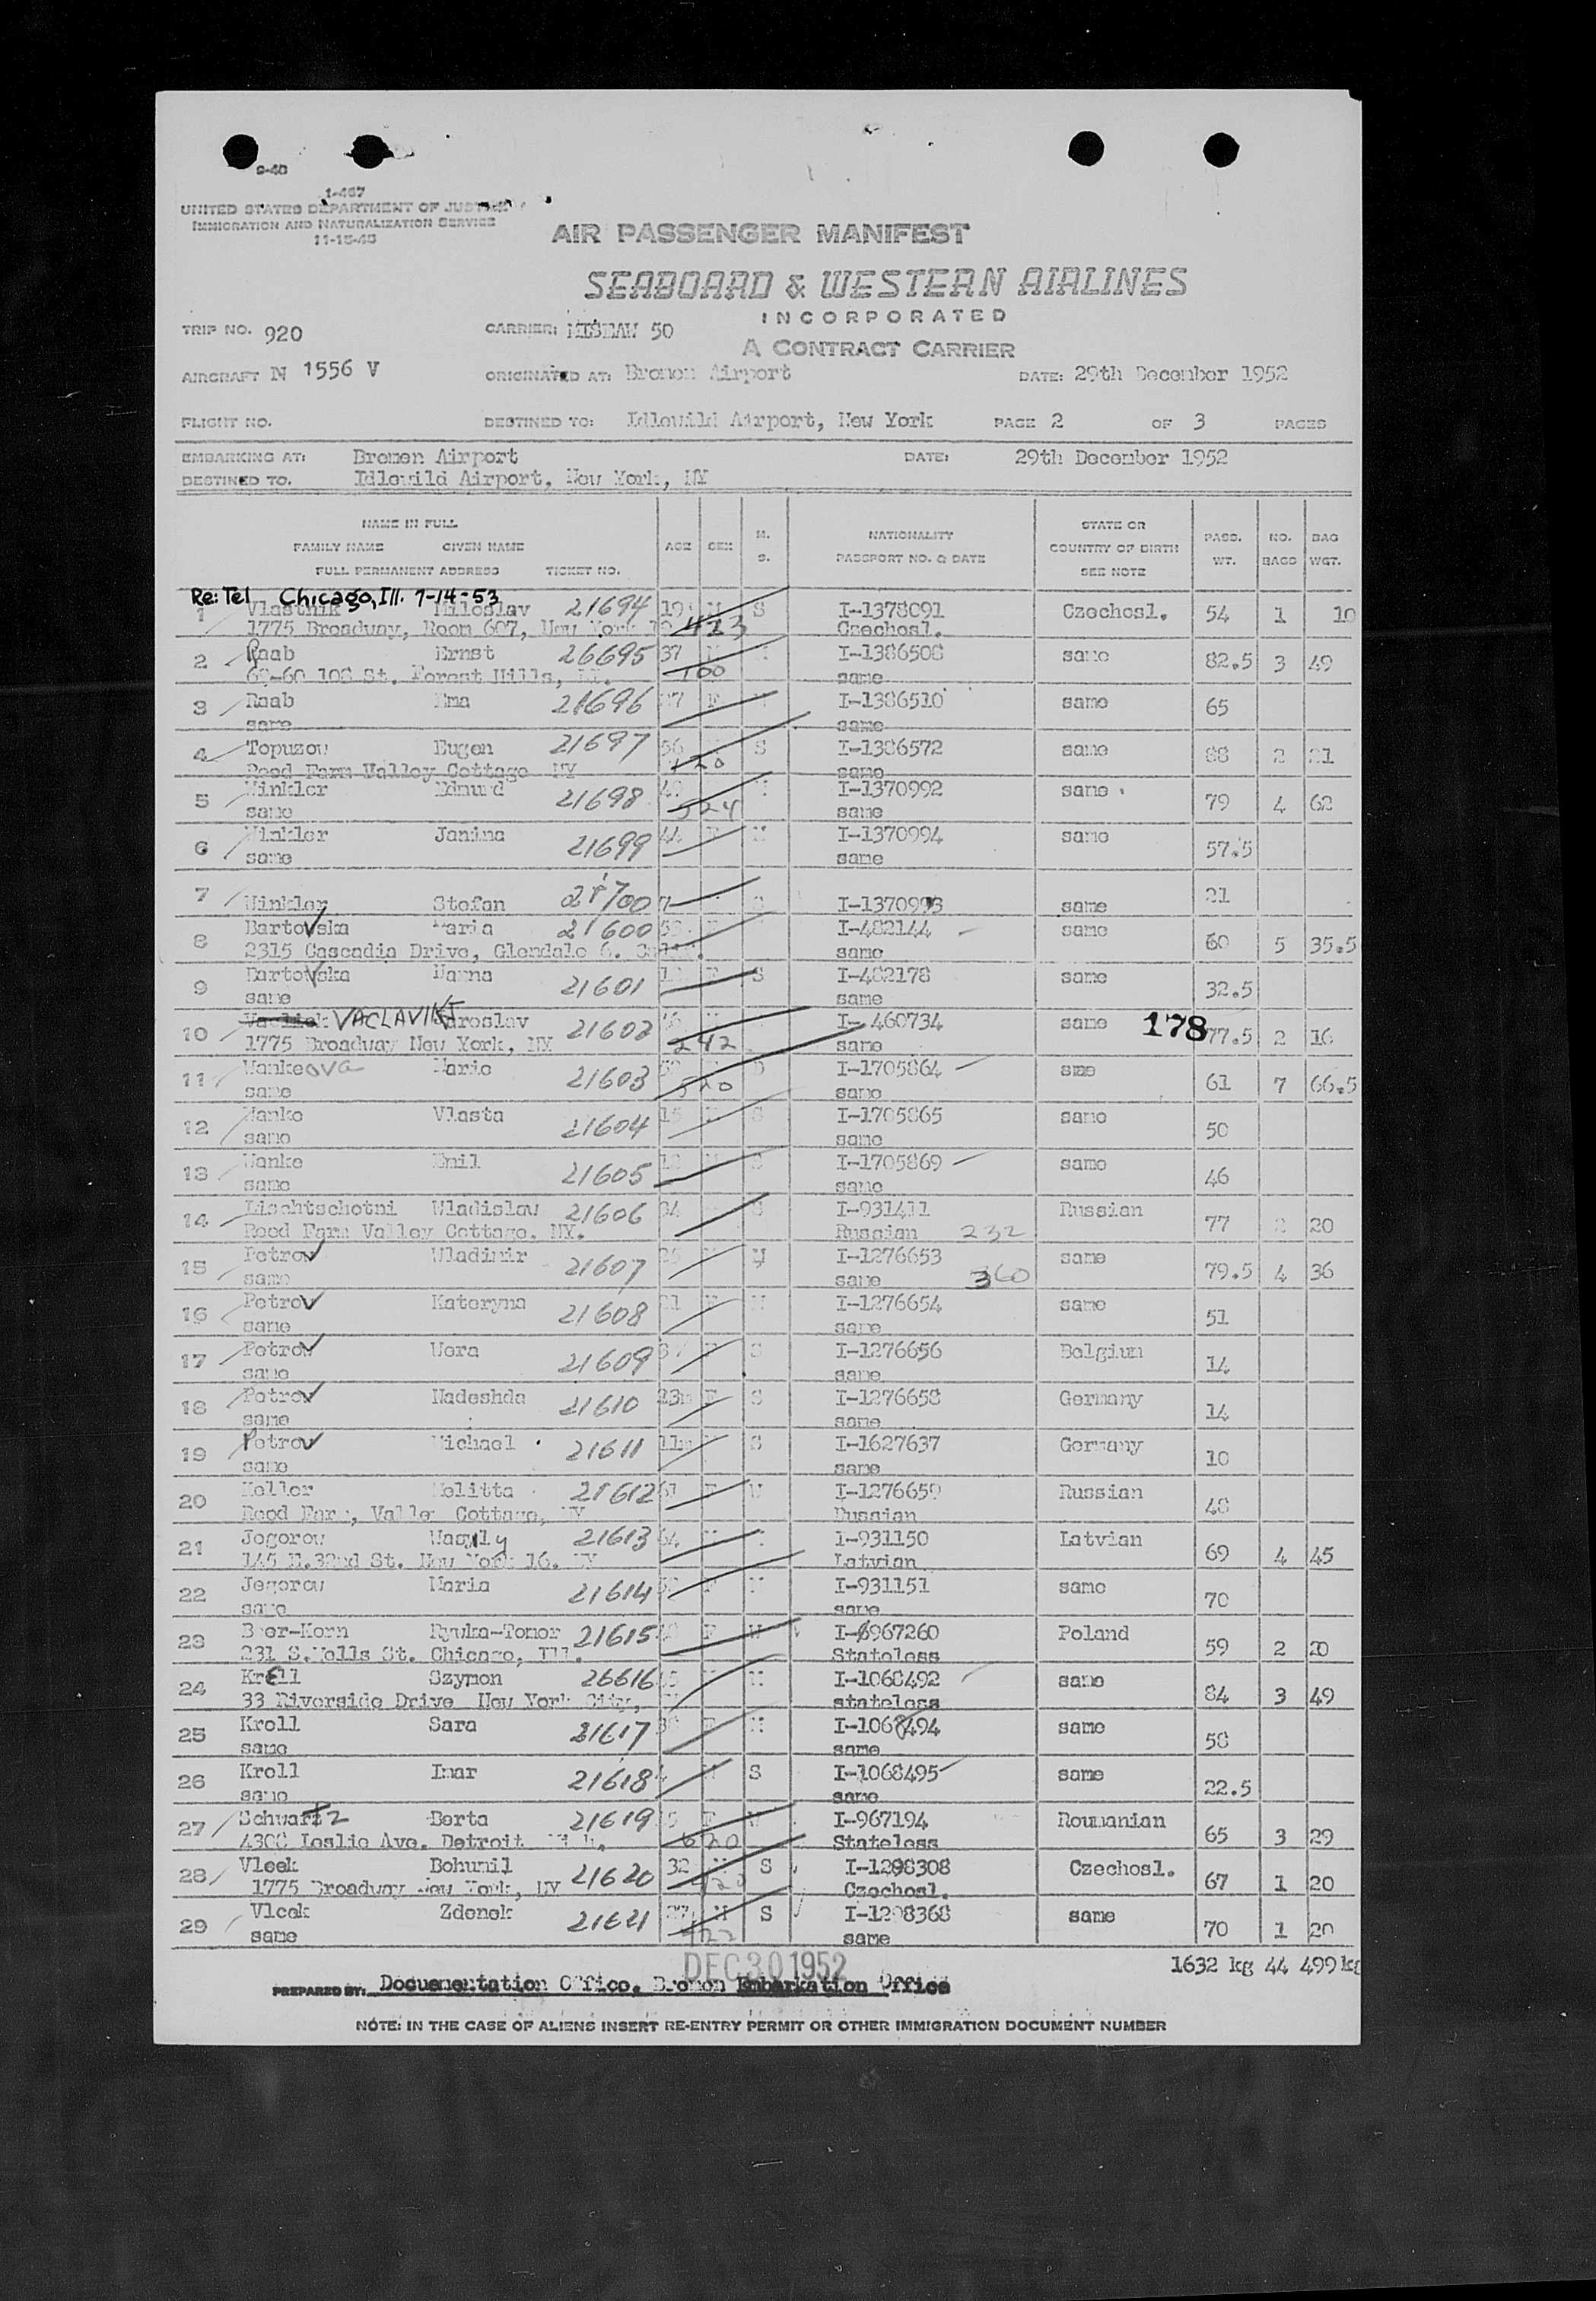 9-48
1-467
UNITED STATES DEPARTMENT OF
IMMIGRATION AND NATURALIZATION SERVICE
11-15-48
AIR PASSENGER MANIFEST
SEABOARD & WESTERN AIRLINES
INCORPORATED
A CONTRACT CARRIER
TRIP NO. 920 CARRIER: 50
AIRCRAFT N 1556 V ORIGINATED AT: Bremen Airport DATE: 29th December 1952
FLIGHT NO. DESTINED TO: Idlewild Airport, New York PAGE 2 OF 3 PAGES
EMBARKING AT: Bremen Airport DATE: 29th December 1952
DESTINED TO. Idlewild Airport, New York, NY
NAME IN FULL
FAMILY NAME GIVEN NAME
FULL PERMANENT ADDRESS TICKET NO. AGE SEX M. S. NATIONALITY PASSPORT NO. & DATE STATE OR COUNTRY OF BIRTH SEE NOTE PASS. WT. NO. BAGS BAG WGT.
Re: Tel Chicago, Ill. 7-14-53
1 Vlastnik Miloslav 21694 19 M S I-1378091 Czechosl. 54 1 10
1775 Broadway, Room 607, New York 19 413 Czechosl.
2 Raab Ernst 26695 37 M I-1386508 same 82.5 3 49
108 St. Forest Hills, 100 same
3 Raab Ema 21696 F I-1386510 same 65
same same
4 Topuzov Eugen 21697 56 S I-1386572 same 88 2 21
Reed Farm Valley Cottage NY 420 same
5 Winkler Edmund 21698 I-1370992 same 79 4 62
same 524 same
6 Winkler Janina 21699 44 F M I-1370994 same 57.5
same same
7 Winkler Stefan 21700 7 I-1370993 same 21
8 Bartovska Maria 21600 I-482144 same 60 5 35.5
2315 Cascadia Drive, Glendale 6. same
9 Bartovska Hanna 21601 F S I-482178 same 32.5
same same
10 VACLAVIK Jaroslav 21602 I- 460734 same 178 77.5 2 16
1775 Broadway New York, NY 242 same
11 Wankeova Marie 21603 I-1705864 sme 61 7 66.5
same 520 same
12 Wanke Vlasta 21604 15 S I-1705865 same 50
same same
13 Wanke Emil 21605 M S I-1705869 same 46
same same
14 Lischtschotni Wladislaw 21606 34 S I-931411 Russian 77 20
Reed Farm Valley Cottage. NY. Russian 232
15 Petrov Wladimir 21607 M I-1276653 same 79.5 4 36
same same 360
16 Petrov Kateryna 21608 I-1276654 same 51
same same
17 Petrov Wera 21609 S I-1276656 Belgium 14
same same
18 Petrov Nadeshda 21610 23m F S I-1276658 Germany 14
same same
19 Petrov Michael 21611 11m S I-1627637 Germany 10
same same
20 Keller Melitta 21612 61 I-1276659 Russian 48
Reed Farm, Valley Cottage, NY Russian
21 Jegorow Wasyly 21613 64 I-931150 Latvian 69 4 45
145 E.32nd St. New York 16. NY Latvian
22 Jegorow Maria 21614 F M I-931151 same 70
same same
23 Beer-Korn Ryuka-Tomor 21615 F W I-6967260 Poland 59 2 20
231 S.Wells St. Chicago, Ill. Stateless
24 Krell Szymon 26616 M I-1068492 same 84 3 49
33 Riverside Drive New York City, stateless
25 Kroll Sara 21617 F M I-1068494 same 58
same same
26 Kroll Imar 21618 M S I-1068495 same 22.5
same same
27 Schwartz Berta 21619 F I-967194 Roumanian 65 3 29
4300 Leslie Ave. Detroit 620 Stateless
28 Vlcek Bohumil 21620 32 M S I-1298308 Czechosl. 67 1 20
1775 Broadway New York, NY Czechosl.
29 Vlcek Zdenek 21621 27 M S I-1298368 same 70 1 20
same same
1632 kg 44 499 kg
DEC 30 1952
PREPARED BY: Documentation Office, Bremen Embarkation Office
NOTE: IN THE CASE OF ALIENS INSERT RE-ENTRY PERMIT OR OTHER IMMIGRATION DOCUMENT NUMBER